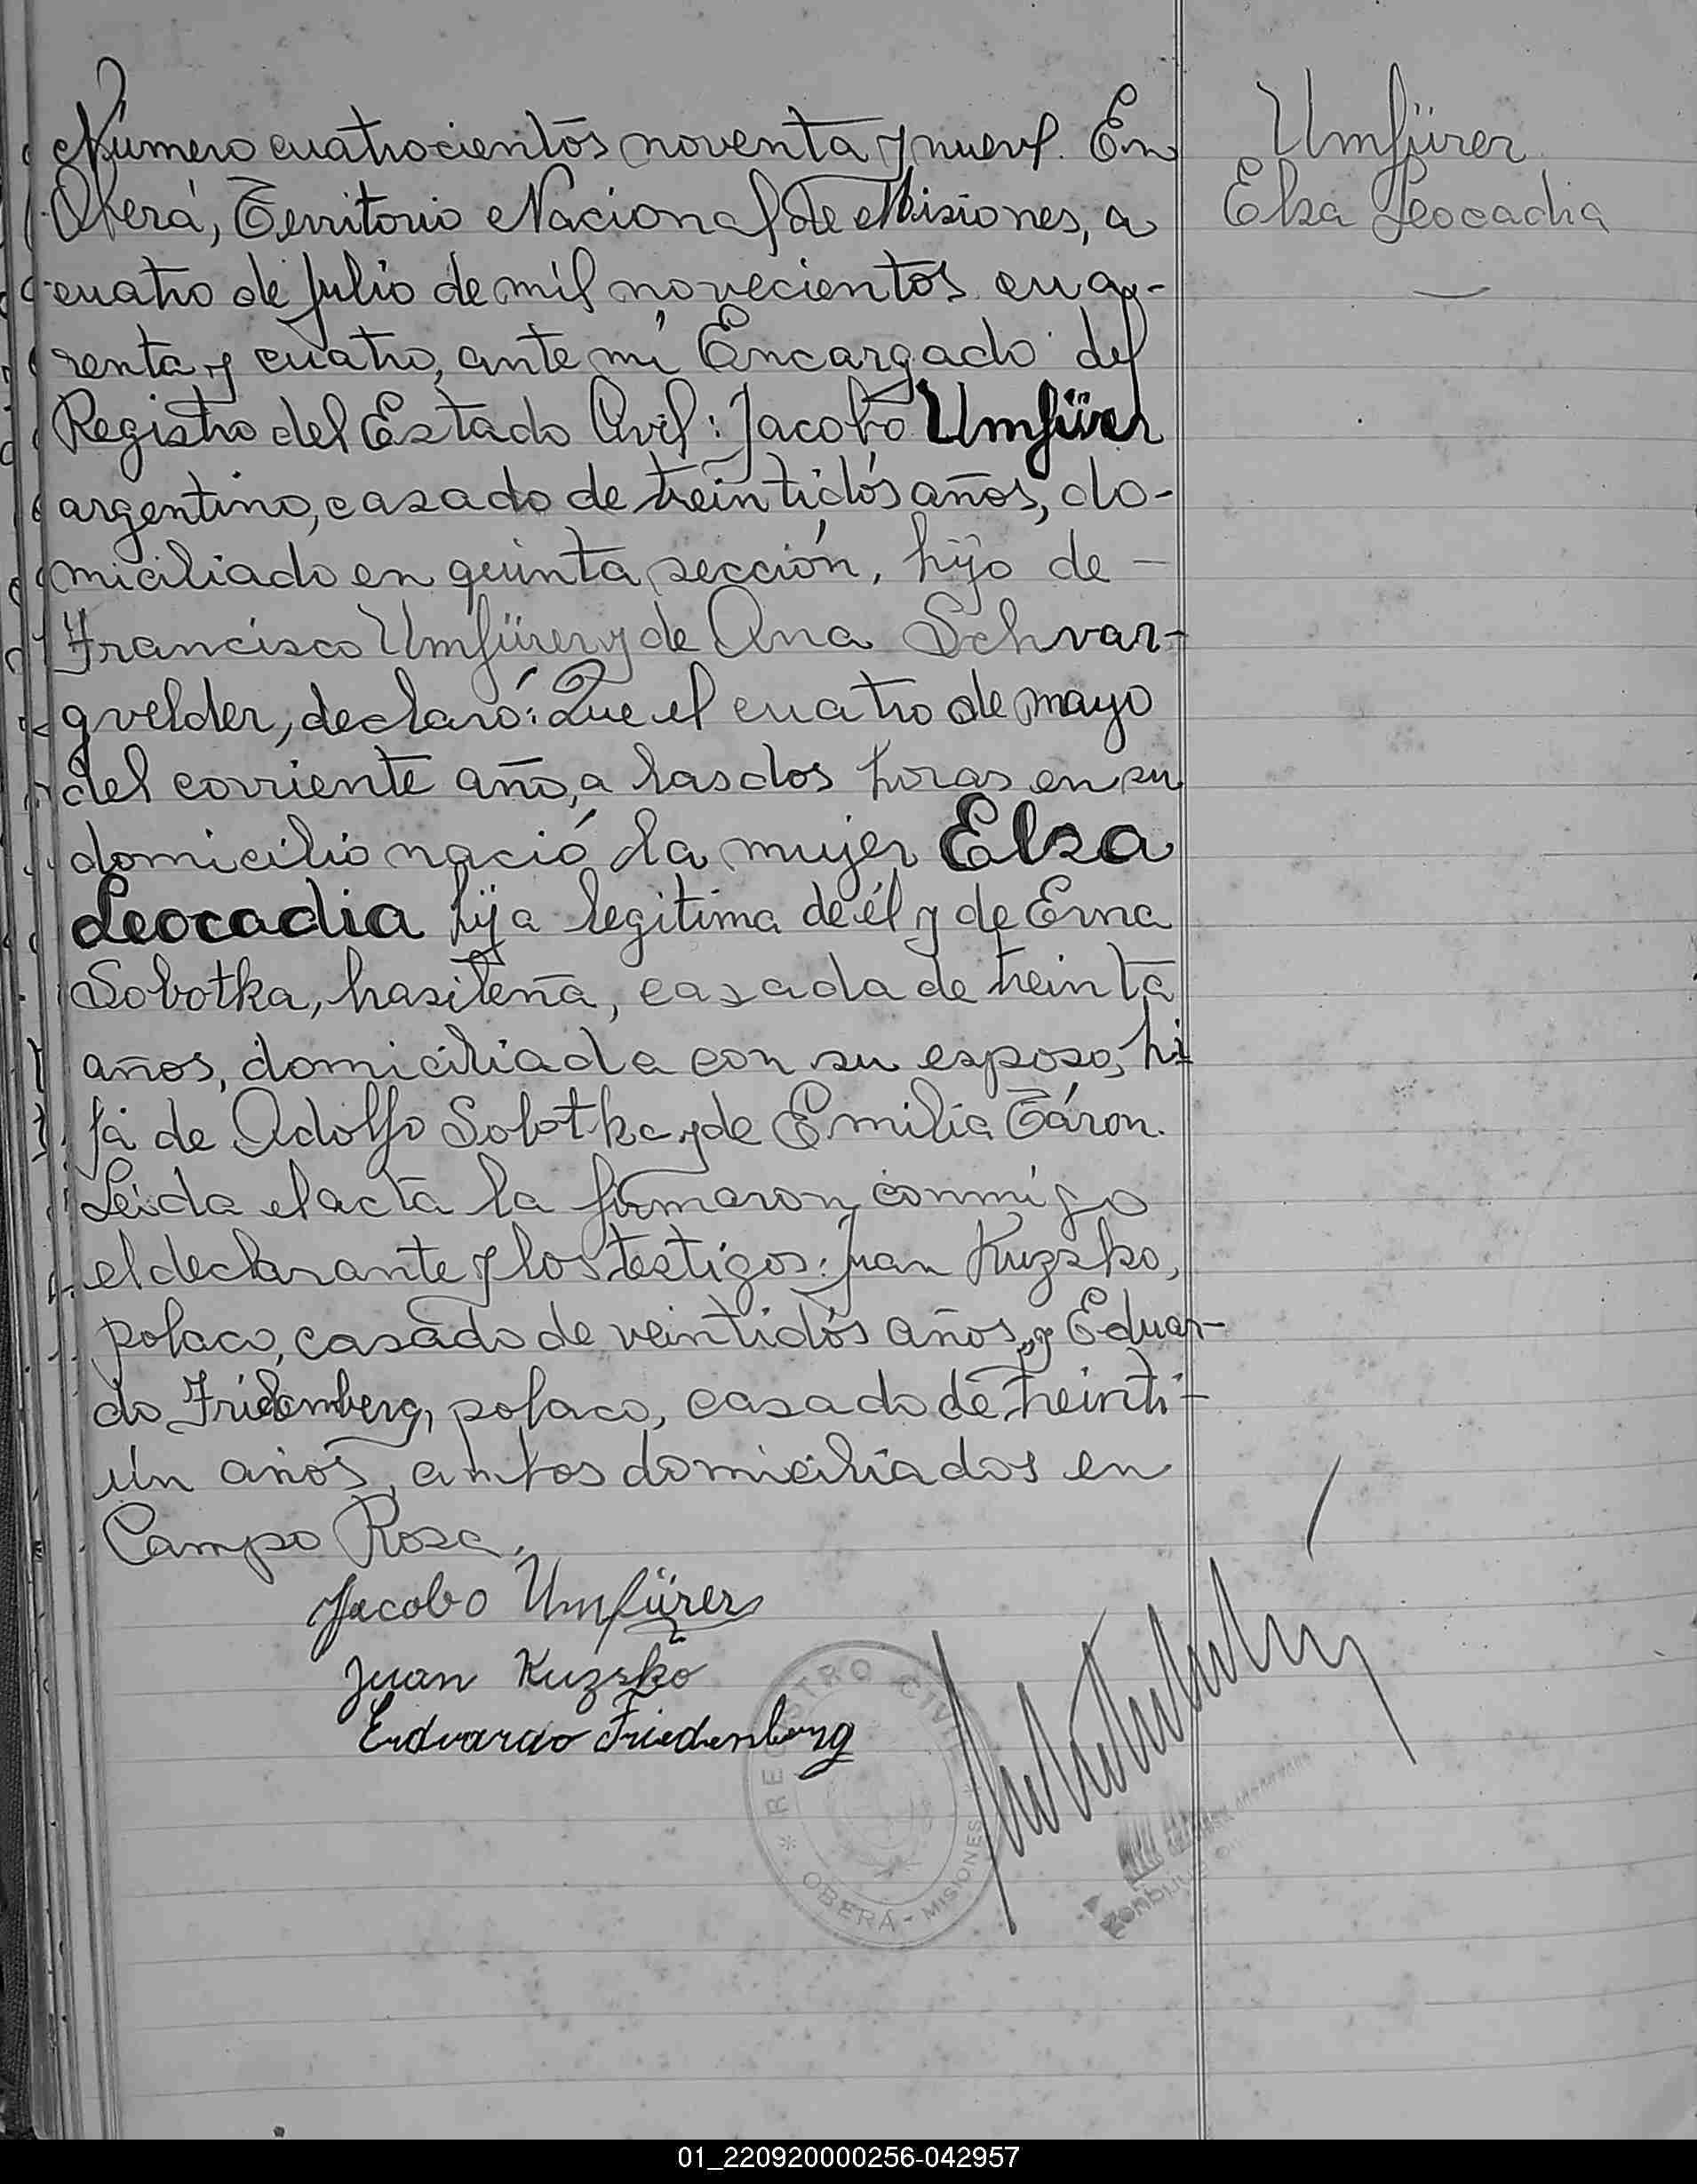 Número cuatrocientos noventa y nueve. En
Oberá, Territorio Nacional de Misiones, a
cuatro de Julio de mil novecientos cua-
renta y cuatro, ante mí Encargado del
Registro del Estado Civil: Jacobo Umfürer
argentino, casado de treintidós años, do-
miciliado en quinta sección, hijo de —
Francisco Umfürer y de Ana Schvar-
gvelder, declaró: Que el cuatro de mayo
del corriente año, a las dos horas en su
domicilio nació la mujer Elsa
Leocadia hija legítima de él y de Erna
Sobotka, brasileña, casada de treinta
años, domiciliada con su esposo, hi
ja de Adolfo Sobotka y de Emilia Táron.
Leída el acta la firmaron conmigo
el declarante y los testigos: Juan Kuzsko,
polaco, casado de veintidós años, y Eduar-
do Fridemberg, polaco, casado de treinti-
ún años, ambos domiciliados en
Campo Rosa.
Umfürer
Elsa Leocadia
Jacobo Umfürer
Juan Kuzsko
Erdvardo Friedenberg
REGISTRO CIVIL
OBERÁ - MISIONES
01_220920000256-042957